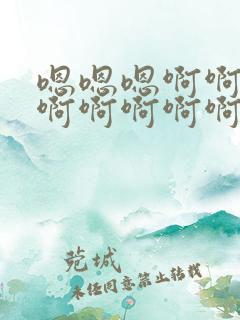 嗯嗯嗯啊啊
啊啊啊啊啊
菀城
未经同意禁止转载